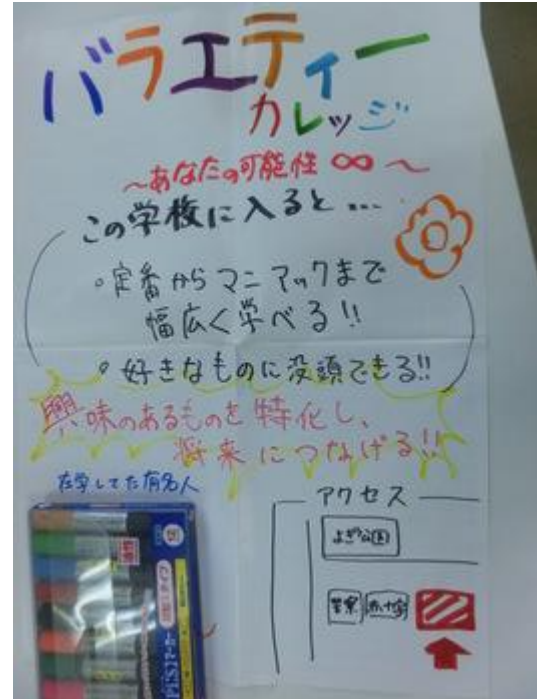 バラエティー
カレッジ
～あなたの可能性∞～
この学校に入ると…
・定番からマニアックまで
幅広く学べる!!
・好きなものに没頭できる!!
興味のあるものを特化し、
将来につなげる!!
在学してた有名人
アクセス
よぎ公園
警察
赤十字